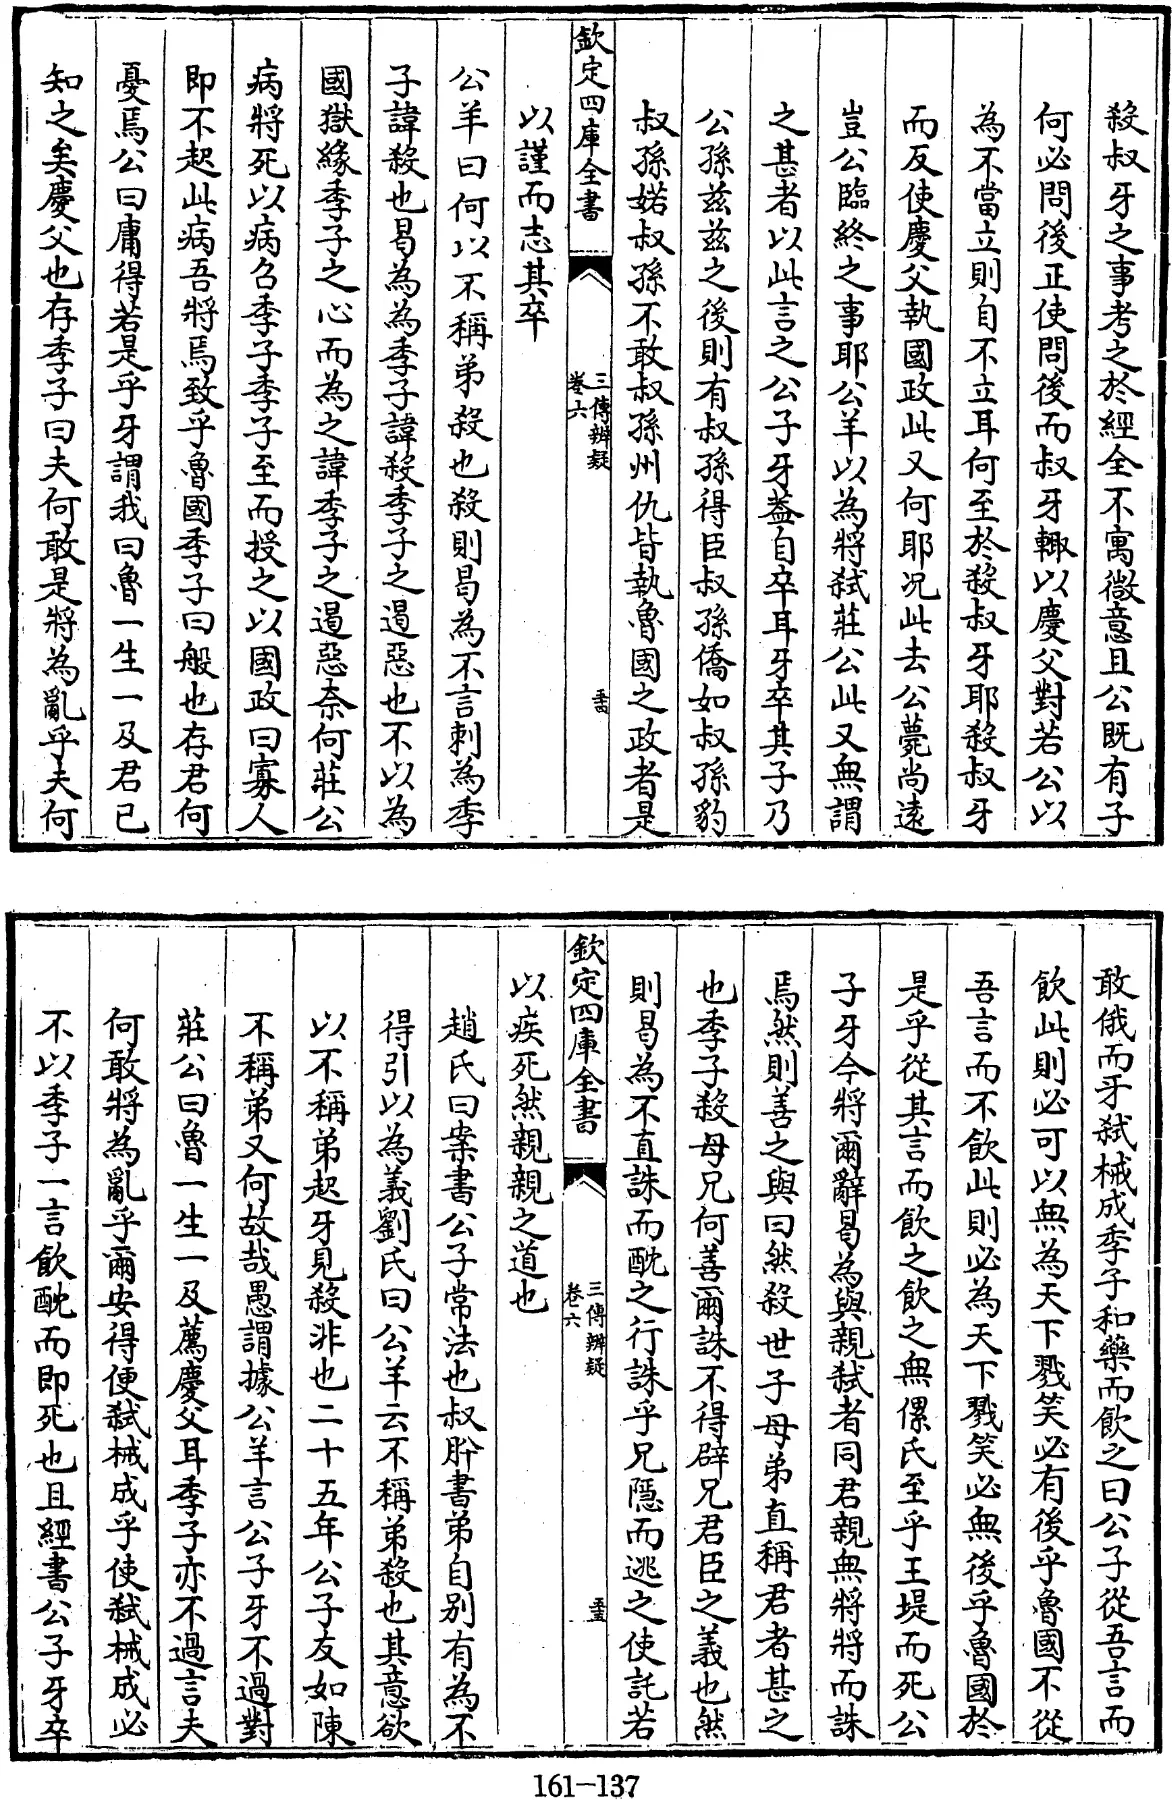 殺叔牙之事考之於經全不寓微意且公既有子
何必問後正使問後而叔牙輙以慶父對若公以
為不當立則自不立耳何至於殺叔牙耶殺叔牙
而反使慶父執國政此又何耶况此去公薨尚遠
豈公臨終之事耶公羊以為將弑莊公此又無謂
之甚者以此言之公子牙葢自卒耳牙卒其子乃
公孫兹兹之後則有叔孫得臣叔孫僑如叔孫豹
叔孫婼叔孫不敢叔孫州仇皆執魯國之政者是
欽定四庫全書
三傳辨疑
卷六
五十四
以謹而志其卒
公羊曰何以不稱弟殺也殺則曷為不言刺為季
子諱殺也曷為為季子諱殺季子之遏惡也不以為
國獄緣季子之心而為之諱季子之遏惡奈何莊公
病將死以病召季子季子至而授之以國政曰寡人
即不起此病吾將焉致乎魯國季子曰般也存君何
憂焉公曰庸得若是乎牙謂我曰魯一生一及君已
知之矣慶父也存季子曰夫何敢是將為亂乎夫何
敢俄而牙弑械成季子和藥而飲之曰公子從吾言而
飲此則必可以無為天下戮笑必有後乎魯國不從
吾言而不飲此則必為天下戮笑必無後乎魯國於
是乎從其言而飲之飲之無傫氏至乎王堤而死公
子牙今將爾辭曷為與親弑者同君親無將將而誅
焉然則善之與曰然殺世子母弟直稱君者甚之
也季子殺母兄何善爾誅不得辟兄君臣之義也然
則曷為不直誅而酖之行誅乎兄隱而逃之使託若
欽定四庫全書
三傳辨疑
卷六
五十五
以疾死然親親之道也
趙氏曰案書公子常法也叔肸書弟自别有為不
得引以為義劉氏曰公羊云不稱弟殺也其意欲
以不稱弟起牙見殺非也二十五年公子友如陳
不稱弟又何故哉愚謂據公羊言公子牙不過對
莊公曰魯一生一及薦慶父耳季子亦不過言夫
何敢將為亂乎爾安得便弑械成乎使弑械成必
不以季子一言飲酖而即死也且經書公子牙卒
161-137